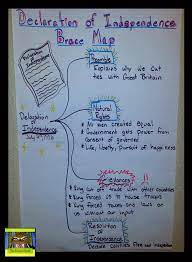 Declaration of Independence
Brace Map
Preamble
Explains why we cut
ties with Great Britain
Declaration
of
Independence
July 4, 1776
Natural
Rights
All men created equal
Government gets power from
consent of governed
Life, liberty, pursuit of happiness
Grievances
King cut off trade with other countries
King forced us to house troops
King forced taxes and laws on
us without our input
Resolution
of
Independence
Declare colonies free and independent